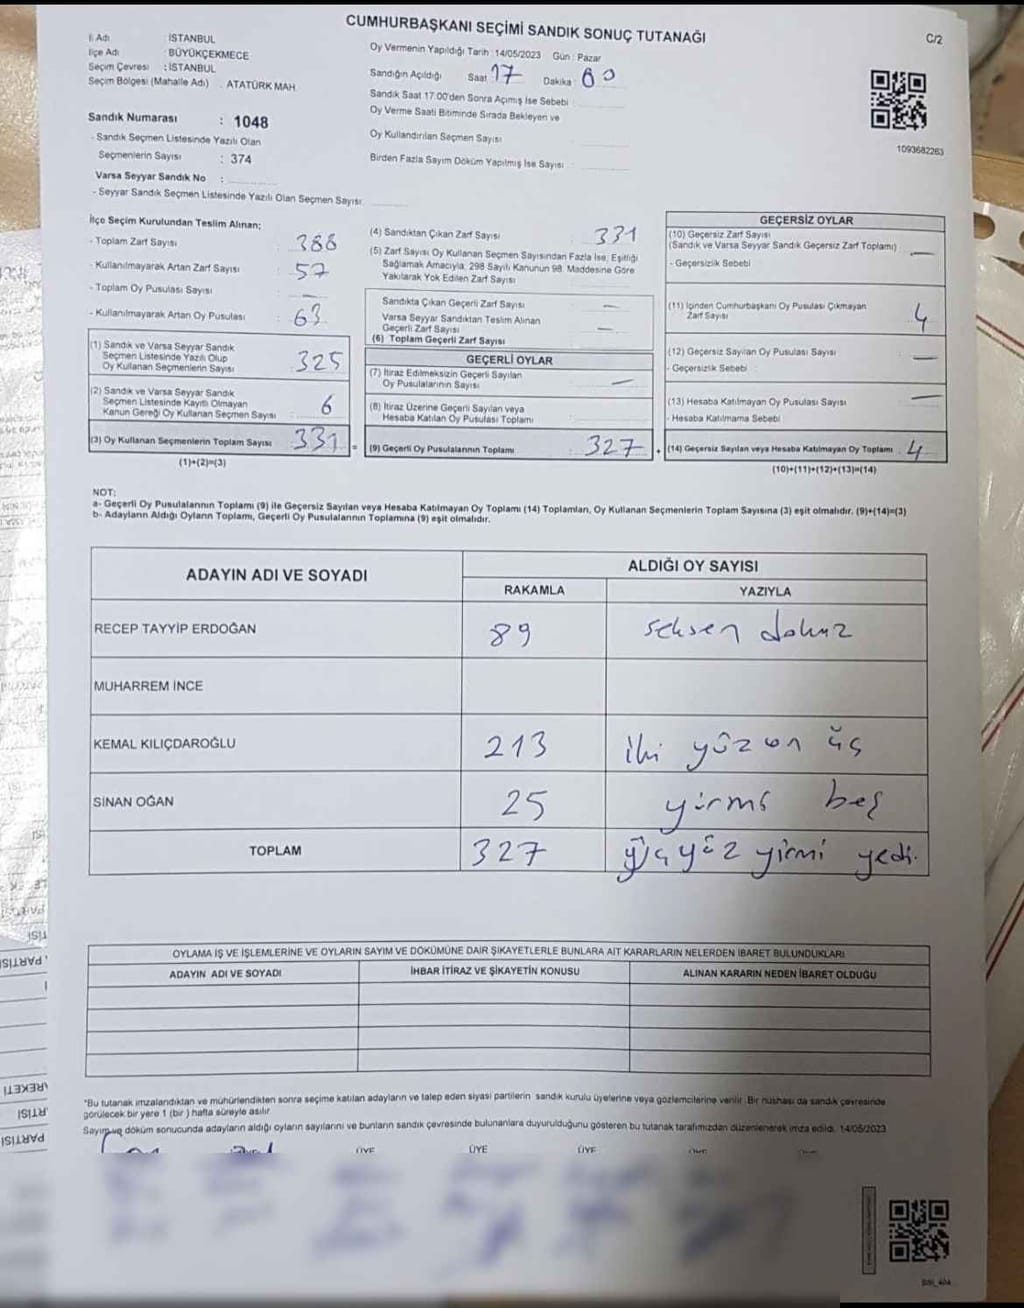 CUMHURBAŞKANI SEÇİMİ SANDIK SONUÇ TUTANAĞI
C/2
İl Adı : İSTANBUL
İlçe Adı : BÜYÜKÇEKMECE
Seçim Çevresi : İSTANBUL
Seçim Bölgesi (Mahalle Adı) . ATATÜRK MAH.
Oy Vermenin Yapıldığı Tarih : 14/05/2023 Gün : Pazar
Sandığın Açıldığı Saat 17 Dakika : 60
Sandık Saat 17:00'den Sonra Açımış İse Sebebi
Oy Verme Saati Bitiminde Sırada Bekleyen ve
Oy Kullandırılan Seçmen Sayısı
Birden Fazla Sayım Döküm Yapılmış İse Sayısı
1093682263
Sandık Numarası : 1048
- Sandık Seçmen Listesinde Yazılı Olan
Seçmenlerin Sayısı : 374
Varsa Seyyar Sandık No :
- Seyyar Sandık Seçmen Listesinde Yazılı Olan Seçmen Sayısı
İlçe Seçim Kurulundan Teslim Alınan;
- Toplam Zarf Sayısı : 388
- Kullanılmayarak Artan Zarf Sayısı : 57
- Toplam Oy Pusulası Sayısı : —
- Kullanılmayarak Artan Oy Pusulası : 63
(1) Sandık ve Varsa Seyyar Sandık
Seçmen Listesinde Yazılı Olup
Oy Kullanan Seçmenlerin Sayısı : 325
(2) Sandık ve Varsa Seyyar Sandık
Seçmen Listesinde Kayıtlı Olmayan
Kanun Gereği Oy Kullanan Seçmen Sayısı 6
(3) Oy Kullanan Seçmenlerin Toplam Sayısı 331 =
(1)+(2)=(3)
(4) Sandıktan Çıkan Zarf Sayısı : 331
(5) Zarf Sayısı Oy Kullanan Seçmen Sayısından Fazla İse, Eşitliği
Sağlamak Amacıyla, 298 Sayılı Kanunun 98. Maddesine Göre
Yakılarak Yok Edilen Zarf Sayısı
Sandıkta Çıkan Geçerli Zarf Sayısı : —
Varsa Seyyar Sandıktan Teslim Alınan
Geçerli Zarf Sayısı : —
(6) Toplam Geçerli Zarf Sayısı
GEÇERLİ OYLAR
(7) İtiraz Edilmeksizin Geçerli Sayılan
Oy Pusulalarının Sayısı : —
(8) İtiraz Üzerine Geçerli Sayılan veya
Hesaba Katılan Oy Pusulası Toplamı
(9) Geçerli Oy Pusulalarının Toplamı : 327 +
GEÇERSİZ OYLAR
(10) Geçersiz Zarf Sayısı
(Sandık ve Varsa Seyyar Sandık Geçersiz Zarf Toplamı) —
- Geçersizlik Sebebi
(11) İçinden Cumhurbaşkanı Oy Pusulası Çıkmayan
Zarf Sayısı 4
(12) Geçersiz Sayılan Oy Pusulası Sayısı —
- Geçersizlik Sebebi
(13) Hesaba Katılmayan Oy Pusulası Sayısı —
- Hesaba Katılmama Sebebi
(14) Geçersiz Sayılan veya Hesaba Katılmayan Oy Toplamı 4
(10)+(11)+(12)+(13)=(14)
NOT:
a- Geçerli Oy Pusulalarının Toplamı (9) ile Geçersiz Sayılan veya Hesaba Katılmayan Oy Toplamı (14) Toplamları, Oy Kullanan Seçmenlerin Toplam Sayısına (3) eşit olmalıdır. (9)+(14)=(3)
b- Adayların Aldığı Oyların Toplamı, Geçerli Oy Pusulalarının Toplamına (9) eşit olmalıdır.
ADAYIN ADI VE SOYADI
ALDIĞI OY SAYISI
RAKAMLA YAZIYLA
RECEP TAYYİP ERDOĞAN 89 seksen dokuz
MUHARREM İNCE
KEMAL KILIÇDAROĞLU 213 iki yüz on üç
SİNAN OĞAN 25 yirmi beş
TOPLAM 327 üçyüz yirmi yedi.
OYLAMA İŞ VE İŞLEMLERİNE VE OYLARIN SAYIM VE DÖKÜMÜNE DAİR ŞİKAYETLERLE BUNLARA AİT KARARLARIN NELERDEN İBARET BULUNDUKLARI
ADAYIN ADI VE SOYADI İHBAR İTİRAZ VE ŞİKAYETİN KONUSU ALINAN KARARIN NEDEN İBARET OLDUĞU
*Bu tutanak imzalandıktan ve mühürlendikten sonra seçime katılan adayların ve talep eden siyasi partilerin sandık kurulu üyelerine veya gözlemcilerine verilir. Bir nüshası da sandık çevresinde
görülecek bir yere 1 (bir) hafta süreyle asılır.
Sayım ve döküm sonucunda adayların aldığı oyların sayılarını ve bunların sandık çevresinde bulunanlara duyurulduğunu gösteren bu tutanak tarafımızdan düzenlenerek imza edildi. 14/05/2023
ÜYE ÜYE ÜYE